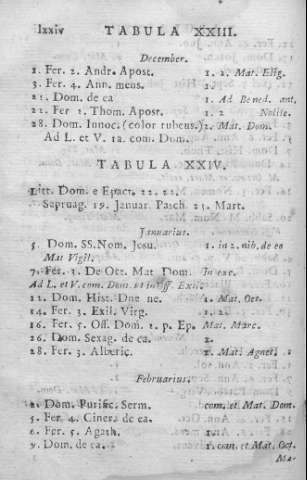 lxxiv TABULA XXIII.
December.
1. Fer. 2. Andr. Apost. 1. 2. Mat. Elig.
3. Fer. 4. Ann. meus. 1.
21. Dom. de ea 1. Ad Bened. ant.
22. Fer 1. Thom. Apost. 1. 2 Nolite.
28. Dom. Innoc. (color rubeus.) 2. Mat. Dom.
Ad L. et V. 1a. com. Dom.
TABULA XXIV.
Litt. Dom. e Epact. 22. 21.
Septuag. 19. Januar. Pasch. 23. Mart.
Januarius.
5. Dom. SS. Nom. Jesu. 1. in 2. nib. de eo
Mat Vigil.
7. Fer. 3. De Oct. Mat Dom. In exc.
Ad L. et V. com. Dom. et in off. Exil.
12. Dom. Hist. Dne ne. 1. Mat. Oct.
14. Fer. 3. Exil. Virg. 1. 2
16. Fer. 5. Off. Dom. 1. p. Ep. Mat. Marc.
26. Dom. Sexag. de ea. 2.
28. Fer. 3. Alberic. 2. Mat. Agnet.
Februarius.
2. Dom. Purific. Serm. com. et Mat. Dom.
5. Fer. 4. Ciner. de ea. 2.
6. Fer. 5. Agath. 1.
9. Dom. de ea. 1. com. et Mat. Oct.
Ma-